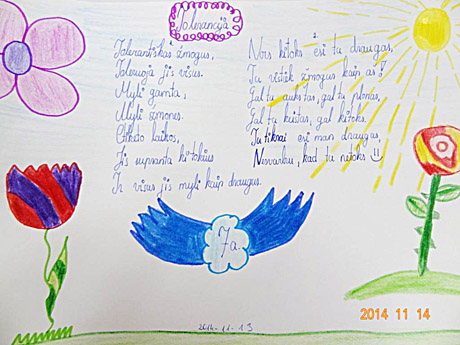 Tolerancija
Tolerantiškas žmogus,
Toleruoja jis visus.
Myli gamtą,
Myli žmones.
laikos,
Jis supranta kitokius
Ir visus jis myli kaip draugus.
Nors kitoks esi tu draugas,
Tu vistiek žmogus kaip aš!
Gal tu aukštas, gal tu plonas,
Gal tu kitoks.
Tu tikrai esi man draugas,
Nesvarbu, kad tu netoks
7a.
2014-11-13
2014 11 14